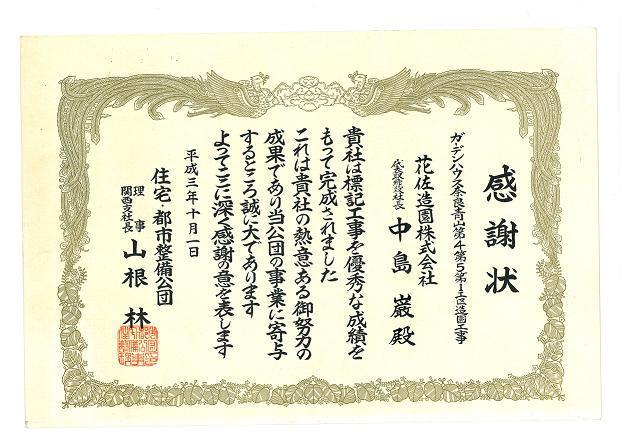 感謝状
ガーデンハウス奈良青山第4第5第1工区造園工事
花佐造園株式会社
代表取締役社長 中島 巌 殿
貴社は標記工事を優秀な成績を
もって完成されました
これは貴社の熱意ある御努力の
成果であり当公団の事業に寄与
するところ誠に大であります
よってここに深く感謝の意を表します
平成三年十月一日
住宅・都市整備公団
理事
関西支社長 山根 林